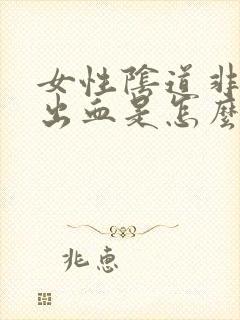 女性陰道非
出血是怎麼
兆惠